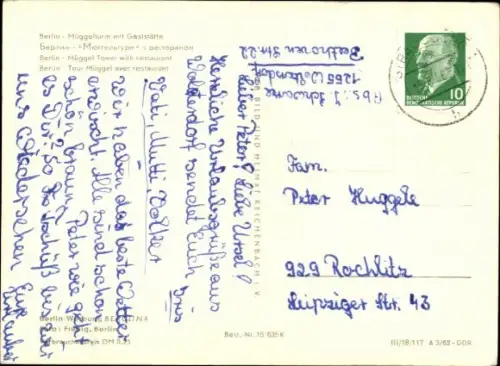 Berlin - Müggelturm mit Gaststätte
Берлин - «Мюггельтурм» с рестораном
Berlin - Müggel Tower with restaurant
Berlin - Tour Müggel avec restaurant
Abs. J. Schramme
1255 Woltersdorf
Beethoven Str. 22
Lieber Peter! Liebe Ursel!
Herzliche Urlaubsgrüße aus
Woltersdorf sendet Euch
Vati, Mutti, Volker
Wir haben das beste Wetter
erwischt. Alle sind schon
schön braun. Peter wie geht
es Dir? So Tschüß bis zum
Wiedersehen Eure
Urlauber
BILD UND HEIMAT REICHENBACH I. V.
DEUTSCHE
DEMOKRATISCHE REPUBLIK
10
Fam.
Peter Huggele
929 Rochlitz
Leipziger Str. 43
Berlin-Werbung BEROLINA
Berlin
DM 0,25
Best.-Nr. 15/635 K
III/18/117 A 3/65 DDR